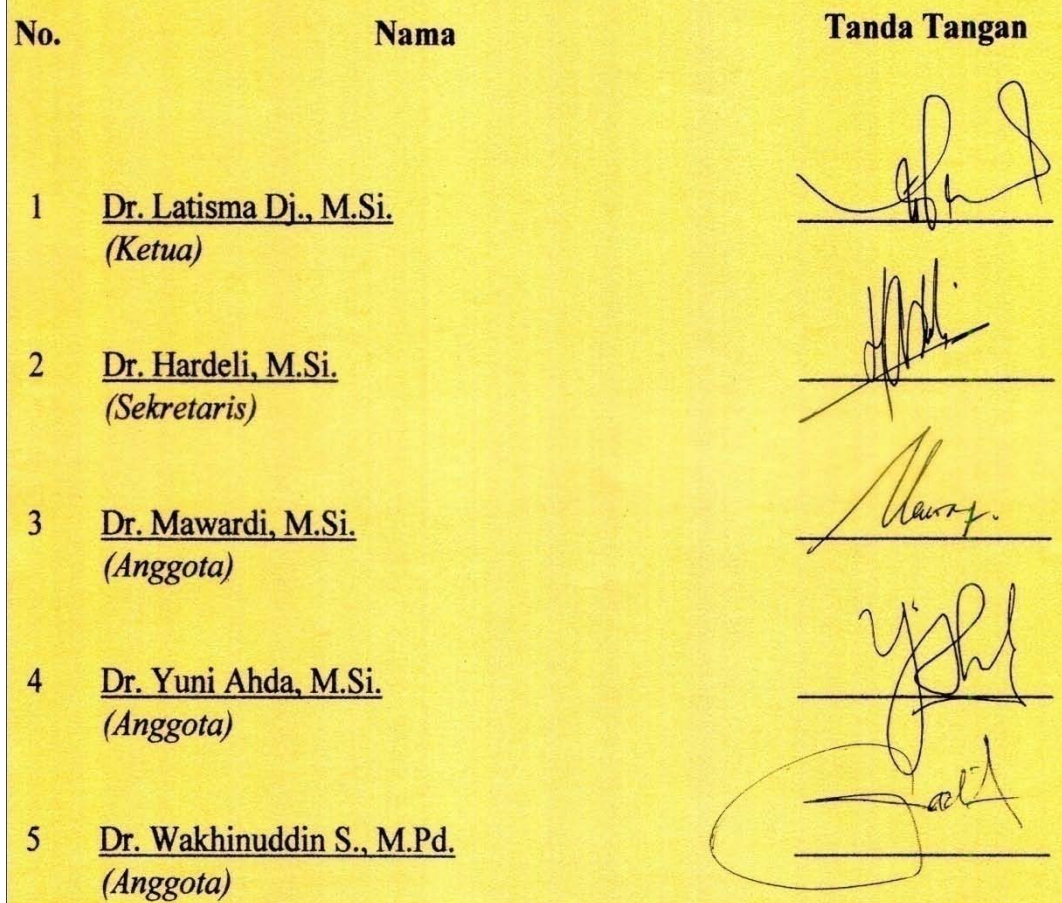 No. Nama Tanda Tangan
1 Dr. Latisma Dj., M.Si.
(Ketua)
2 Dr. Hardeli, M.Si.
(Sekretaris)
3 Dr. Mawardi, M.Si.
(Anggota)
4 Dr. Yuni Ahda, M.Si.
(Anggota)
5 Dr. Wakhinuddin S., M.Pd.
(Anggota)